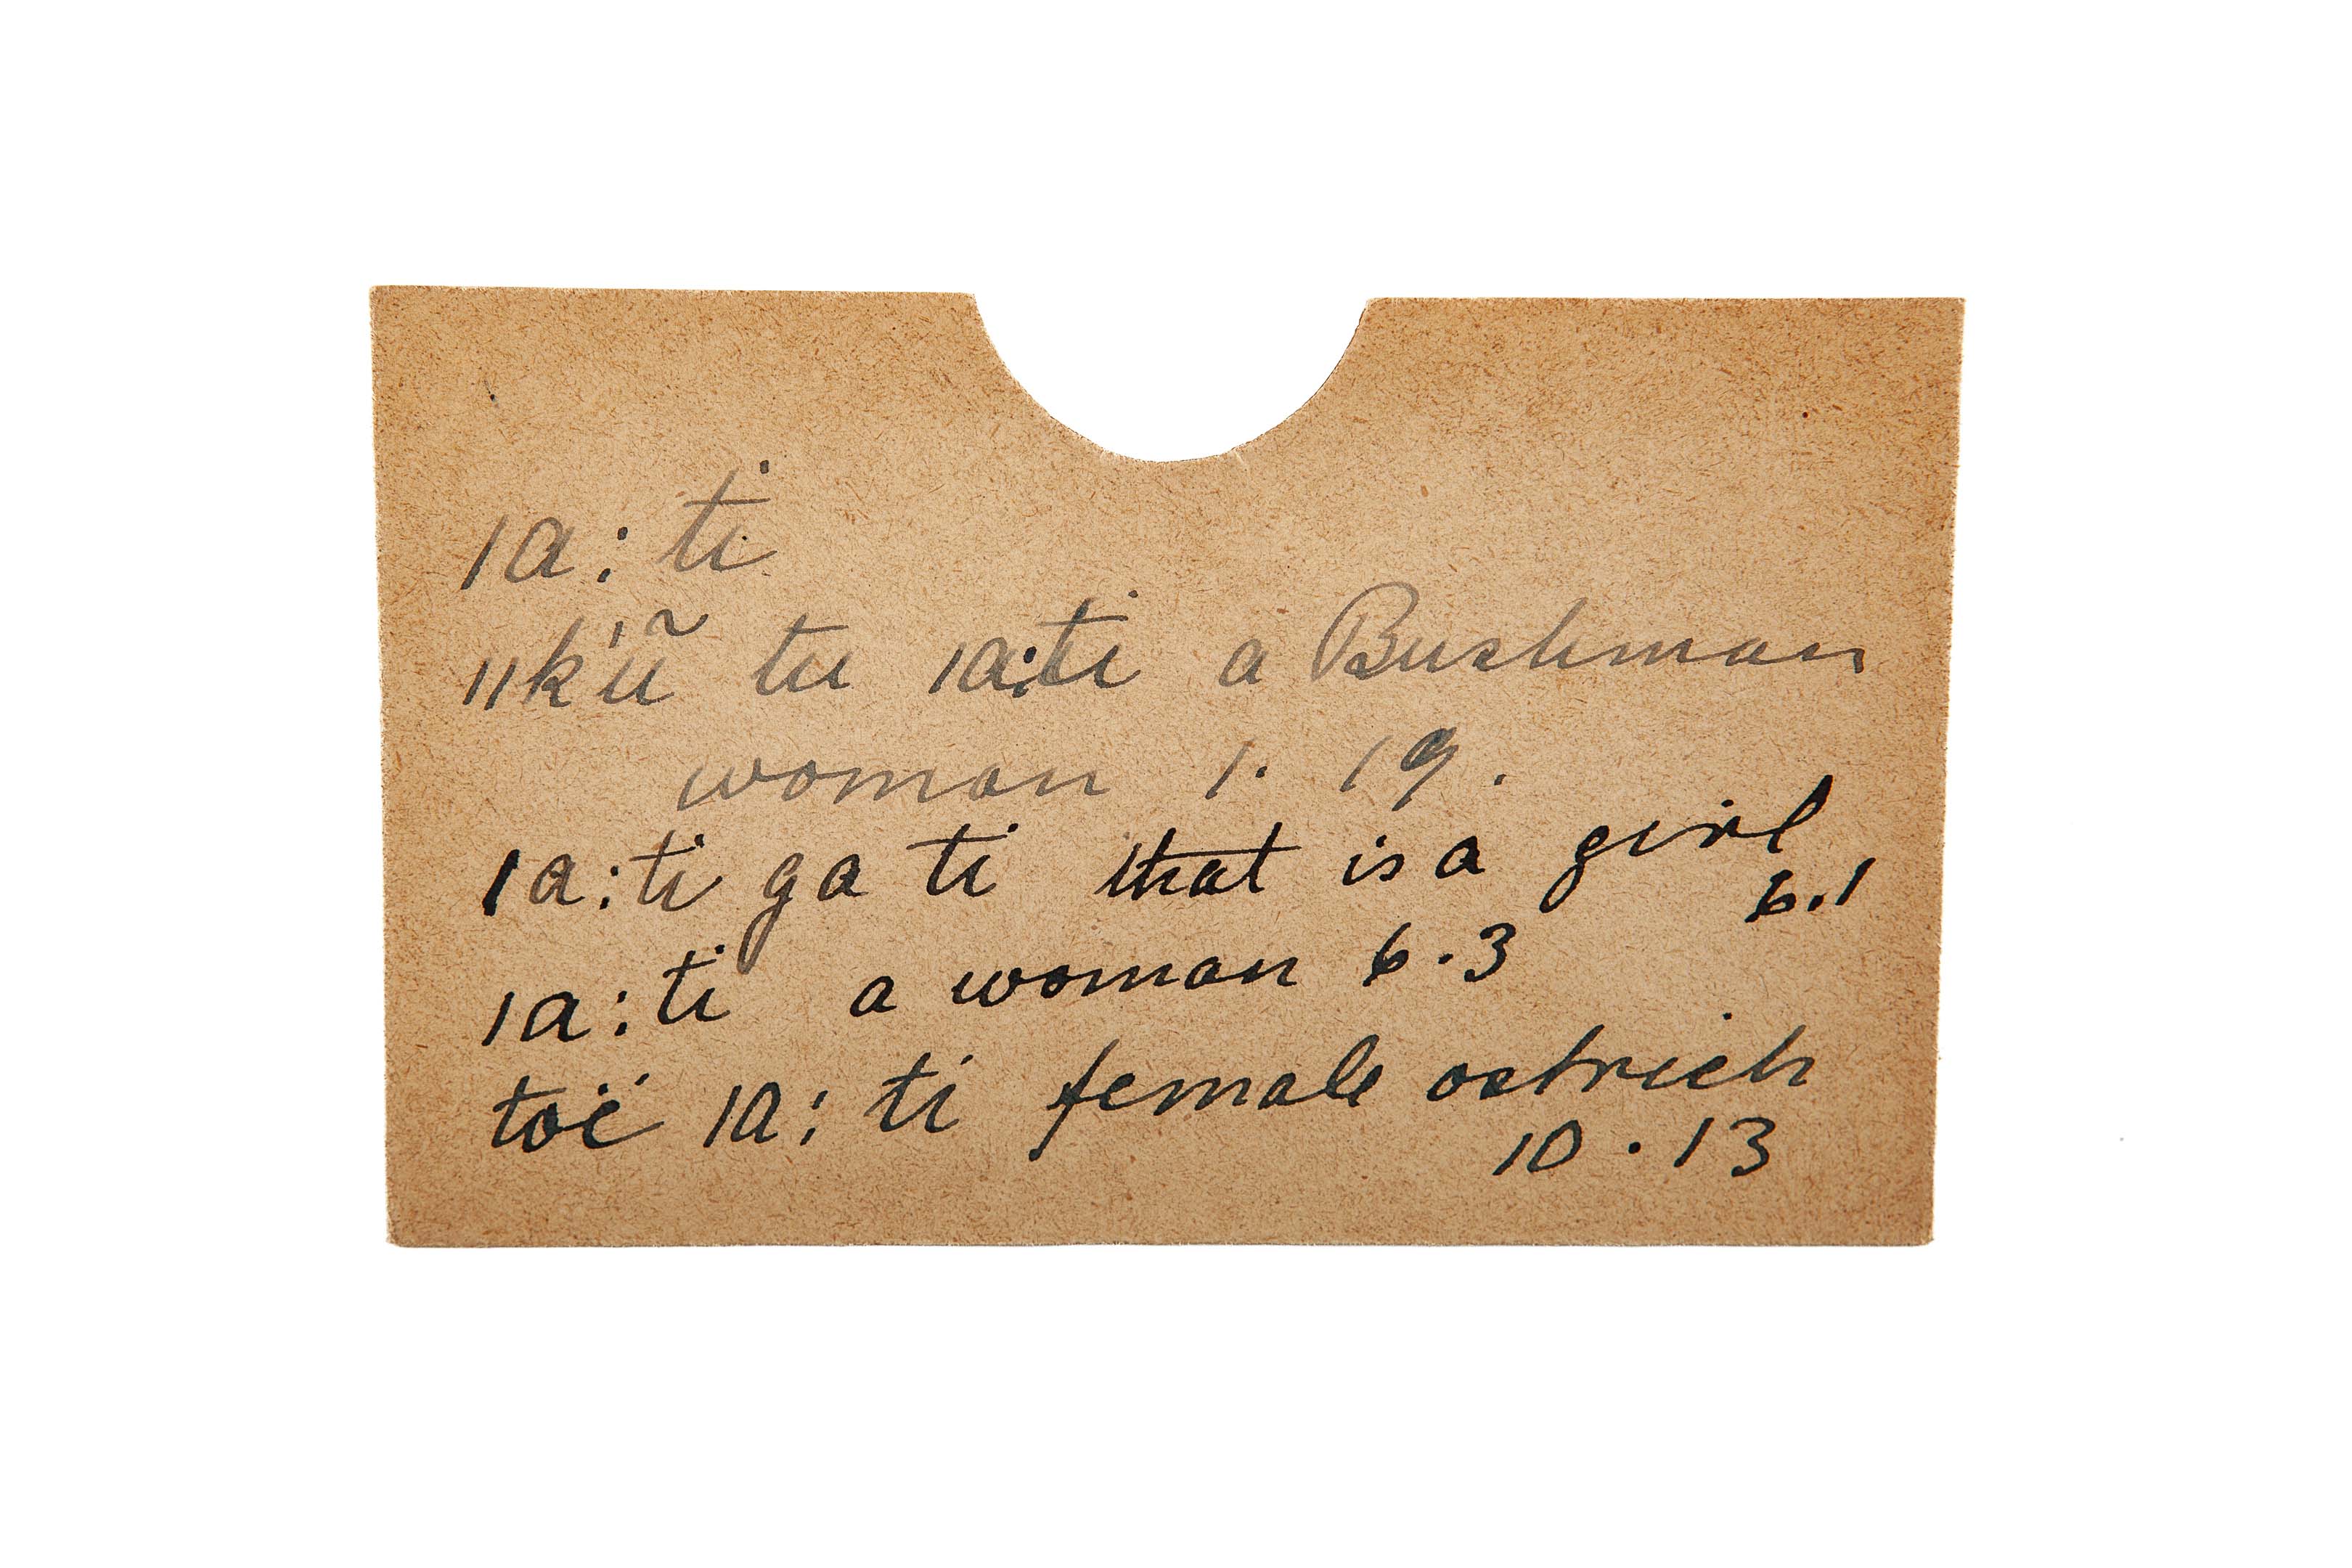 ǀa:ti
ǁk'ũ tu ǀa:ti a Bushman
woman 1. 19.
ǀa:ti ga ti that is a girl
6.1
ǀa:ti a woman 6.3
toë ǀa:ti female ostrich
10.13